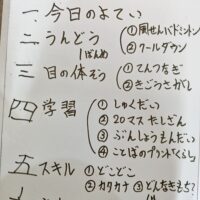 一.今日のよてい
二 うんどう
しばんめ
①風せんバドミントン
②クールダウン
三 目の体そう
①てんつなぎ
②きごうさがし
四 学習
①しゅくだい
②20マスたしざん
③ぶんしょうもんだい
④ことばのプリント くらし
五 スキル
①どこどこ
②カタカナ ③どんなきもち?